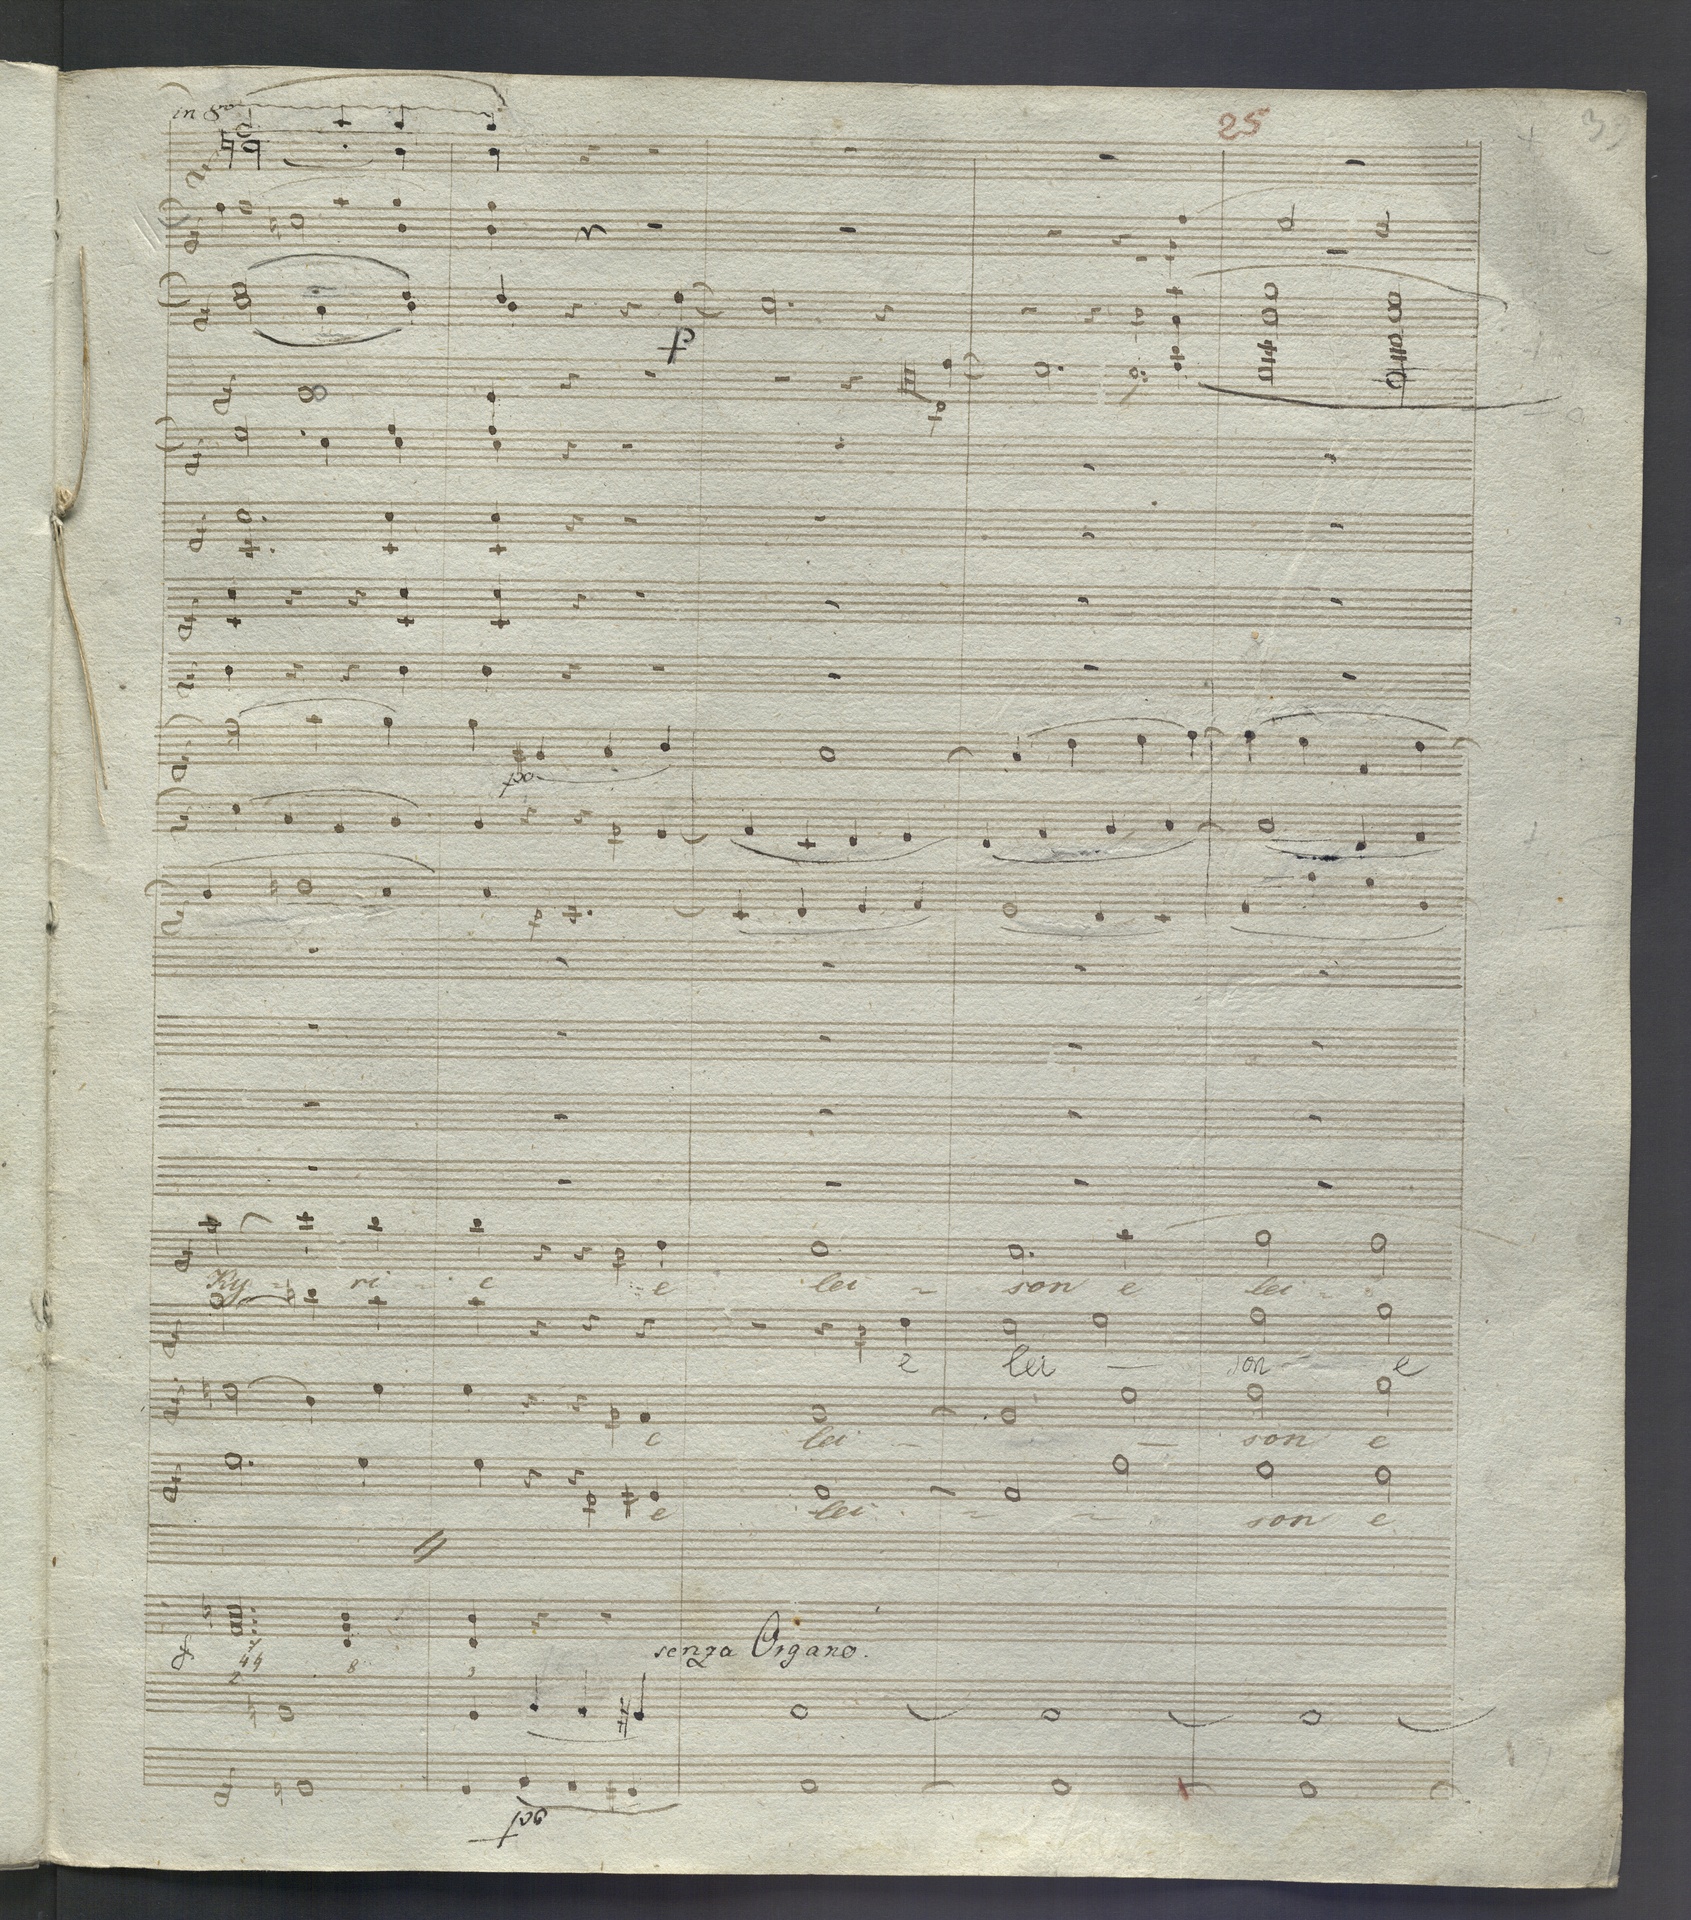 in 8va
25
p
po
Ky - ri - e e lei - son e lei -
e lei — son e
e lei — — son e
e lei - - - son e
senza Organo.
po